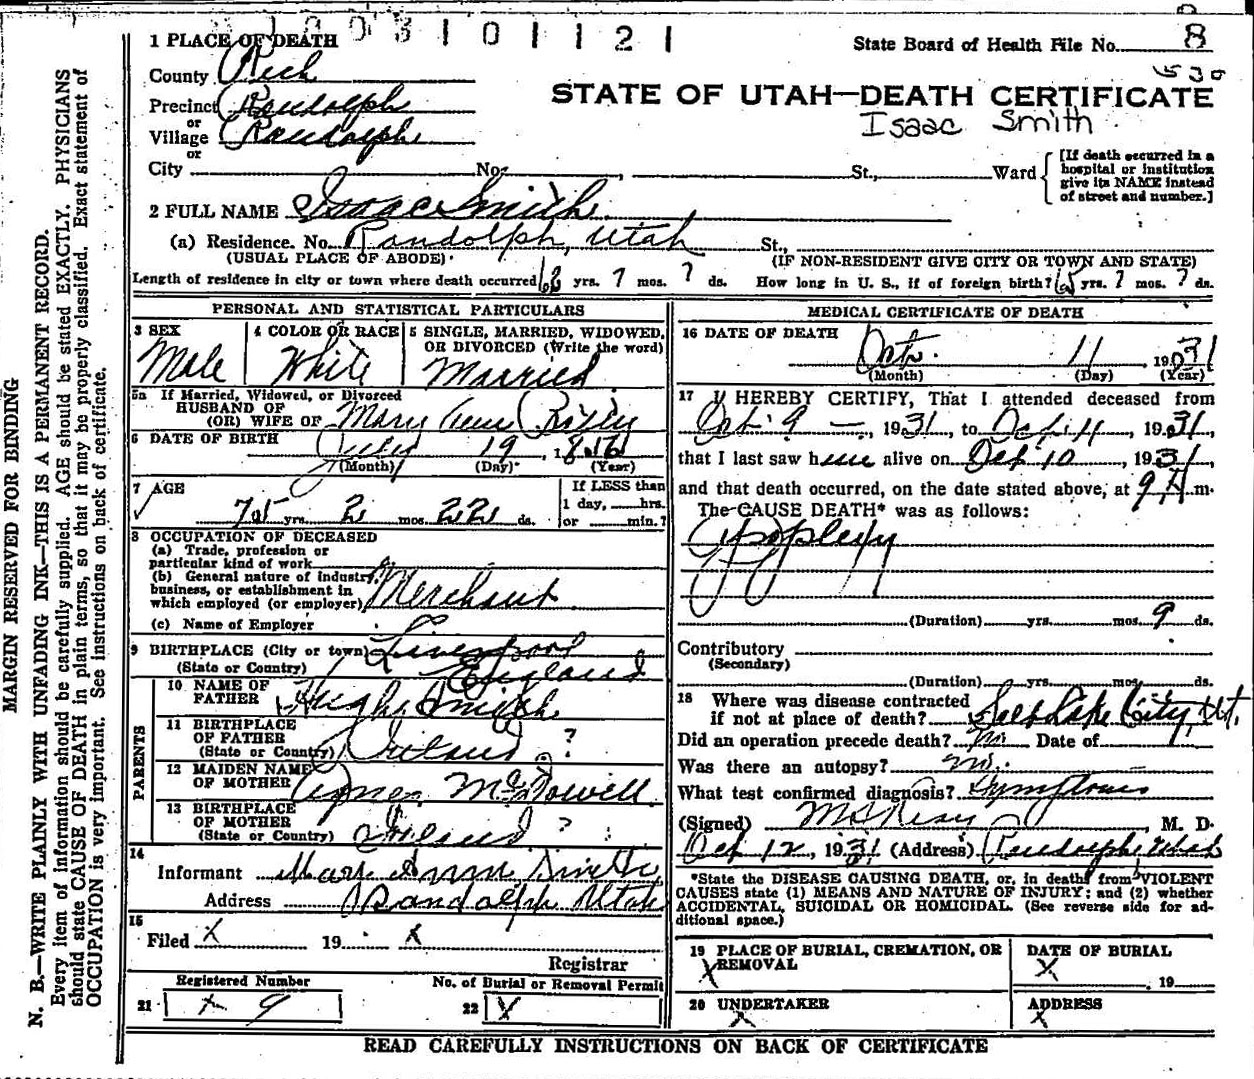 1003101121
8
1 PLACE OF DEATH
State Board of Health File No. 8
County Rich
530
Precinct Randolph
STATE OF UTAH—DEATH CERTIFICATE
or
Village Randolph
Isaac Smith
or
City No. , St., Ward
[If death occurred in a
hospital or institution
give its NAME instead
of street and number.]
2 FULL NAME Isaac Smith
(a) Residence. No. Randolph, Utah St.,
(USUAL PLACE OF ABODE) (IF NON-RESIDENT GIVE CITY OR TOWN AND STATE)
Length of residence in city or town where death occurred yrs. ? mos. ? ds. How long in U. S., if of foreign birth? yrs. ? mos. ? ds.
PERSONAL AND STATISTICAL PARTICULARS
3 SEX
Male
4 COLOR OR RACE
White
5 SINGLE, MARRIED, WIDOWED,
OR DIVORCED (Write the word)
Married
5a If Married, Widowed, or Divorced
HUSBAND OF
(OR) WIFE OF Mary Ann
6 DATE OF BIRTH 19
(Month) (Day) (Year)
7 AGE
75 yrs. 2 mos. 22 ds.
If LESS than
1 day, hrs.
or min.?
8 OCCUPATION OF DECEASED
(a) Trade, profession or
particular kind of work
(b) General nature of industry,
business, or establishment in
which employed (or employer) Merchant
(c) Name of Employer
9 BIRTHPLACE (City or town) Liverpool
(State or Country) England
PARENTS
10 NAME OF
FATHER Hugh Smith
11 BIRTHPLACE
OF FATHER
(State or Country) Ireland ?
12 MAIDEN NAME
OF MOTHER Agnes McDowell
13 BIRTHPLACE
OF MOTHER
(State or Country) Ireland ?
14
Informant Mary Ann Smith
Address Randolph Utah
15
Filed X 19 X
Registrar
Registered Number No. of Burial or Removal Permit
21 9 22 X
MEDICAL CERTIFICATE OF DEATH
16 DATE OF DEATH
Oct. 11 1931
(Month) (Day) (Year)
17 I HEREBY CERTIFY, That I attended deceased from
Oct. 9 —, 1931, to Oct. 11, 1931,
that I last saw him alive on Oct 10, 1931,
and that death occurred, on the date stated above, at 9 A m.
The CAUSE DEATH* was as follows:
Apoplexy
(Duration) yrs. mos. 9 ds.
Contributory
(Secondary)
(Duration) yrs. mos. ds.
18 Where was disease contracted
if not at place of death? Salt Lake City, Ut.
Did an operation precede death? no Date of
Was there an autopsy? no.
What test confirmed diagnosis? Symptoms
(Signed) , M. D.
Oct 12, 1931 (Address) Randolph, Utah
*State the DISEASE CAUSING DEATH, or, in deaths from VIOLENT
CAUSES state (1) MEANS AND NATURE OF INJURY; and (2) whether
ACCIDENTAL, SUICIDAL OR HOMICIDAL. (See reverse side for ad-
ditional space.)
19 PLACE OF BURIAL, CREMATION, OR
REMOVAL
X
DATE OF BURIAL
X
19
20 UNDERTAKER
X
ADDRESS
X
READ CAREFULLY INSTRUCTIONS ON BACK OF CERTIFICATE
MARGIN RESERVED FOR BINDING
N. B.—WRITE PLAINLY WITH UNFADING INK—THIS IS A PERMANENT RECORD.
Every item of information should be carefully supplied. AGE should be stated EXACTLY. PHYSICIANS
should state CAUSE OF DEATH in plain terms, so that it may be properly classified. Exact statement of
OCCUPATION is very important. See instructions on back of certificate.